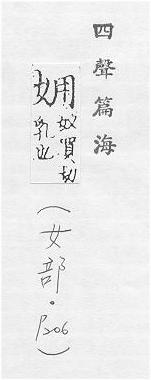 四聲篇海
奴買切
乳也
(女部・P206)